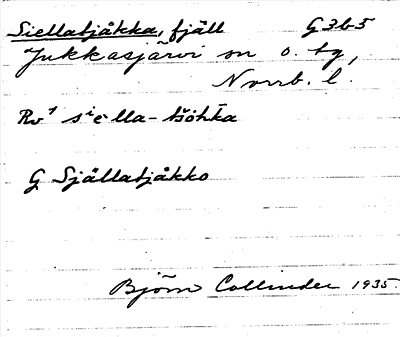 Siellatjåkka, fjäll G3b5
Jukkasjärvi sn o. tg,
Norrb. l.
Rv1 siella-tšohka
G Själlatjåkko
Björn Collinder 1935